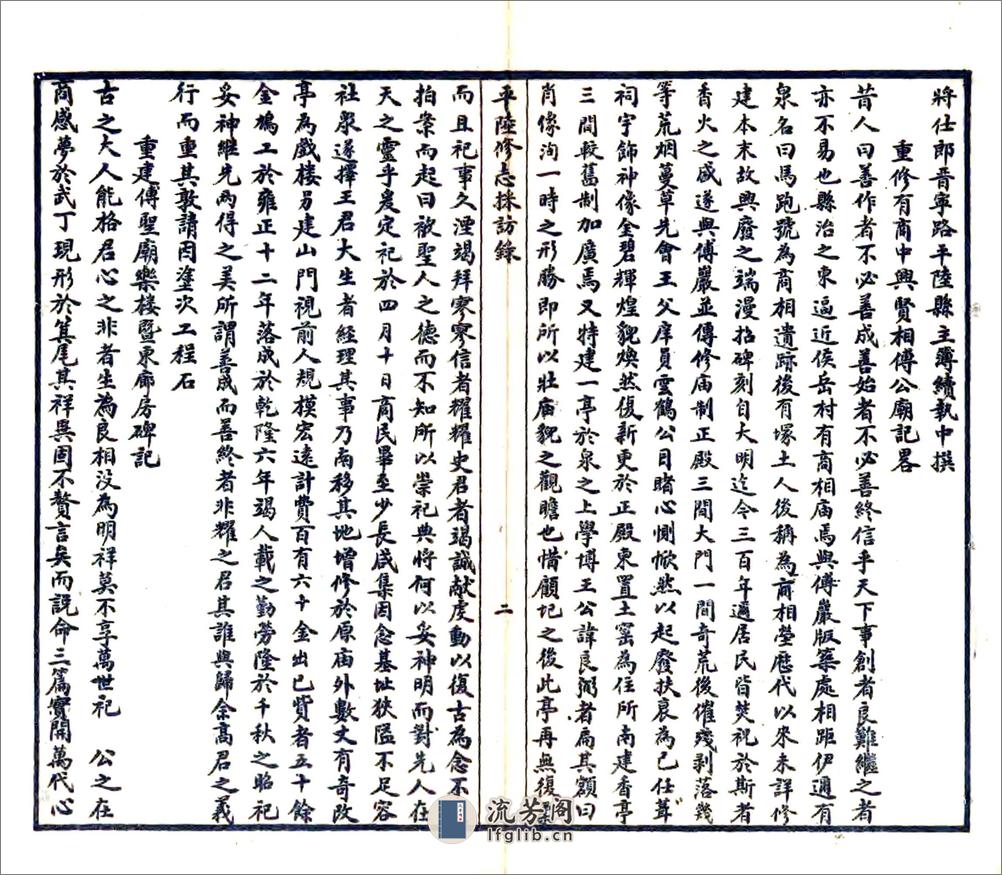 將仕郎晋寧路平陸縣主簿續執中撰
重修有商中興賢相傅公廟記畧
昔人曰善作者不必善成善始者不必善終信乎天下事創者良難繼之者
亦不易也縣治之東逼近侯岳村有商相庙焉與傅巖版築處相距伊邇有
泉名曰馬跑號為商相遺跡後有塚土人後稱為商相塋歷代以來未詳修
建本末故興廢之端漫招碑刻自大明迄今三百年邇居民皆焚祝於斯者
香火之盛遂與傅巖並傳修庙制正殿三間大門一間奇荒後催殘剥落幾
等荒烟蔓草先會王父庠員雲鶴公目睹心惻惞然以起廢扶衰為己任葺
祠宇飾神像金碧輝煌貌煥然復新更於正殿東置土窑為住所南建香亭
三間較舊制加廣焉又特建一亭於泉之上學博王公諱良弼者扁其額曰
肖像洵一時之形勝即所以壯庙貌之觀瞻也惜顧圮之後此亭再無復
平陸修志採訪錄
二
而且祀事久湮竭拜寥寥信者耀耀史君者竭誠献虔動以復古為念不
拍案而起曰被聖人之德而不知所以崇祀典將何以妥神明而對先人在
天之靈乎爰定祀於四月十日商民畢至少長咸集因念基址狹隘不足容
社眾遂擇王君大生者經理其事乃南移其地增修於原庙外數丈有奇改
亭為戲楼另建山門視前人規模宏遠計費百有六十金出已貲者五十餘
金鳩工於雍正十二年落成於乾隆六年竭人載之勤勞隆於千秋之昭祀
妥神繼先兩得之美所謂善成而善終者非耀之君其誰與歸余高君之義
行而重其敦請因塗次工程石
重建傅聖廟樂楼暨東廊房碑記
古之大人能格君心之非者生為良相没為明祥莫不享萬世祀 公之在
商感夢於武丁現形於箕尾其祥異固不贅言矣而説命三篇實開萬代心
流芳阁
lfglib.cn